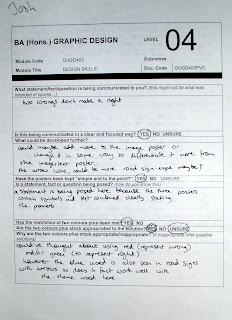 Josh
BA (Hons.) GRAPHIC DESIGN
LEVEL 04
Module Code OUGD403 Outcomes
Module Title DESIGN SKILLS Doc. Code OUGD403PVC
What statement/fact/question is being communicated to you? (this might not be what was
intended of course...)
two wrongs don't make a right
Is this being communicated in a clear and focused way? YES NO UNSURE
What could be developed further?
could maybe add more to the image poster or
change it in some way to differentiate it more from
the image+text poster.
the wrong icons could be more road sign esque maybe?
Have the posters been kept 'simple and to the point'? YES NO UNSURE
Is a statement, fact or question being posed? (how do you know this)
a statement is being posed here because the three posters
contain symbols and text combined clearly stating
the proverb
Has the restriction of two colours plus been met? YES NO
Are the two colours plus stock appropriate to the solution? YES NO UNSURE
Why are the two colours plus stock appropriate/inappropriate? (if inappropriate offer possible
solutions)
could've thought about using red (represent wrong)
and/or green (to represent right)
however the blue used is also seen in road signs
with arrows so does in fact work well with
the theme used here